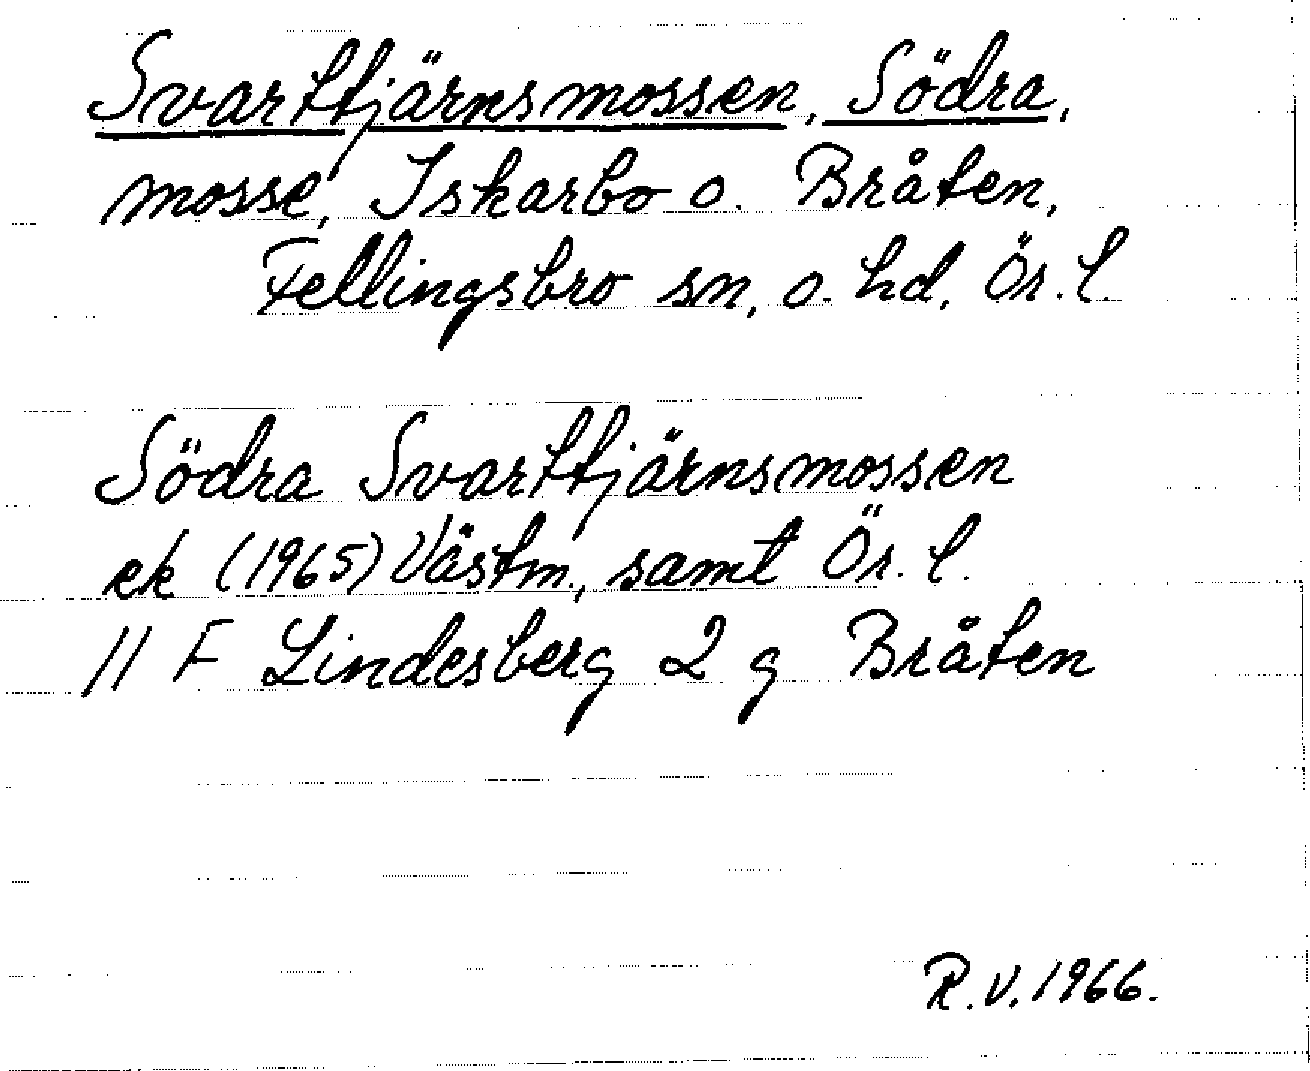 Svarttjärnsmossen, Södra,
mosse, Iskarbo o. Bråten,
Fellingsbro sn, o. hd, Ör. l.
Södra Svarttjärnsmossen
ek (1965) Västm., samt Ör. l.
11 F Lindesberg 2 g Bråten
R.V. 1966.